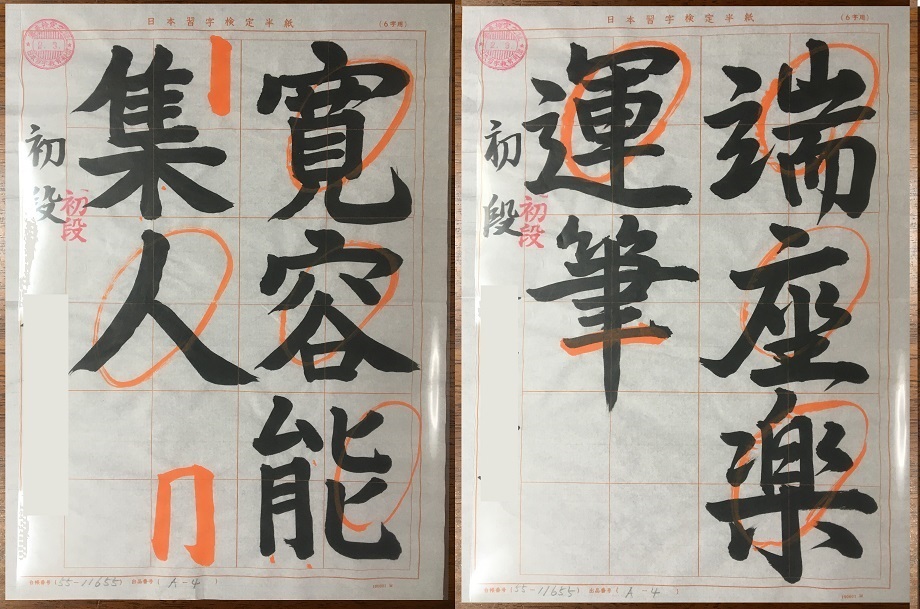 日本習字検定半紙
(6字用)
寛容能
集人
初段
初段
合格番号(55-11655) 出品番号(A-4)
日本習字検定半紙
(6字用)
端座楽
運筆
初段
初段
合格番号(55-11655) 出品番号(A-4)